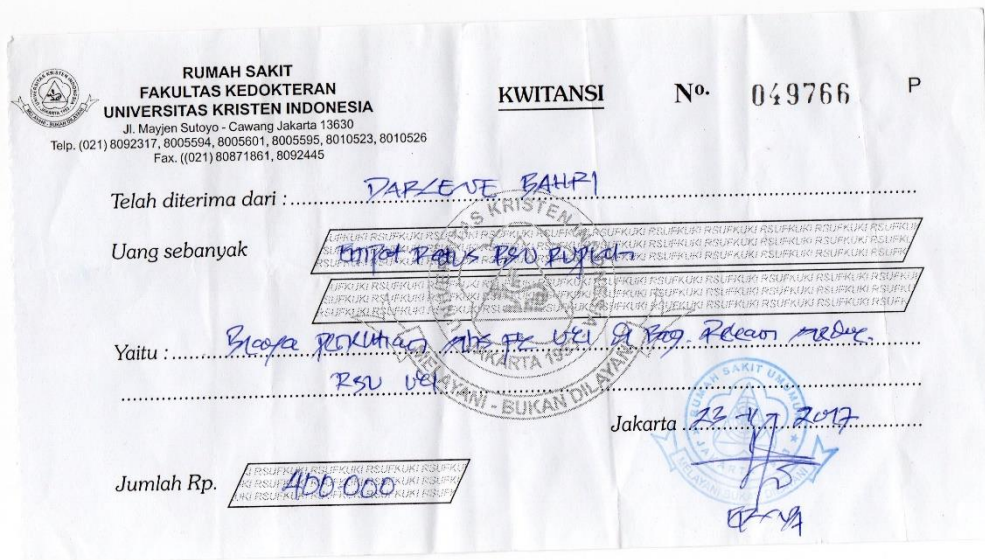 RUMAH SAKIT
FAKULTAS KEDOKTERAN
UNIVERSITAS KRISTEN INDONESIA
Jl. Mayjen Sutoyo - Cawang Jakarta 13630
Telp. (021) 8092317, 8005594, 8005601, 8005595, 8010523, 8010526
Fax. ((021) 80871861, 8092445
KWITANSI No. 049766 P
Telah diterima dari : DARLENE BAHRI
Uang sebanyak Empat Ratus Ribu Rupiah
Yaitu : Biaya mhs FK UKI di Bag. Rekam Medis
RSU UKI
UNIVERSITAS KRISTEN INDONESIA
JAKARTA
MELAYANI - BUKAN DILAYANI
Jakarta 23 - 2017
RUMAH SAKIT UMUM
Jumlah Rp. 400.000